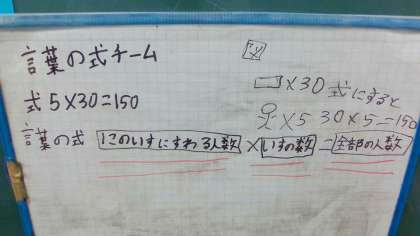 言葉の式チーム
式 5×30=150
言葉の式 このいすにすわる人数×いすの数=全部の人数
図
×30 式にすると
×5 30×5=150